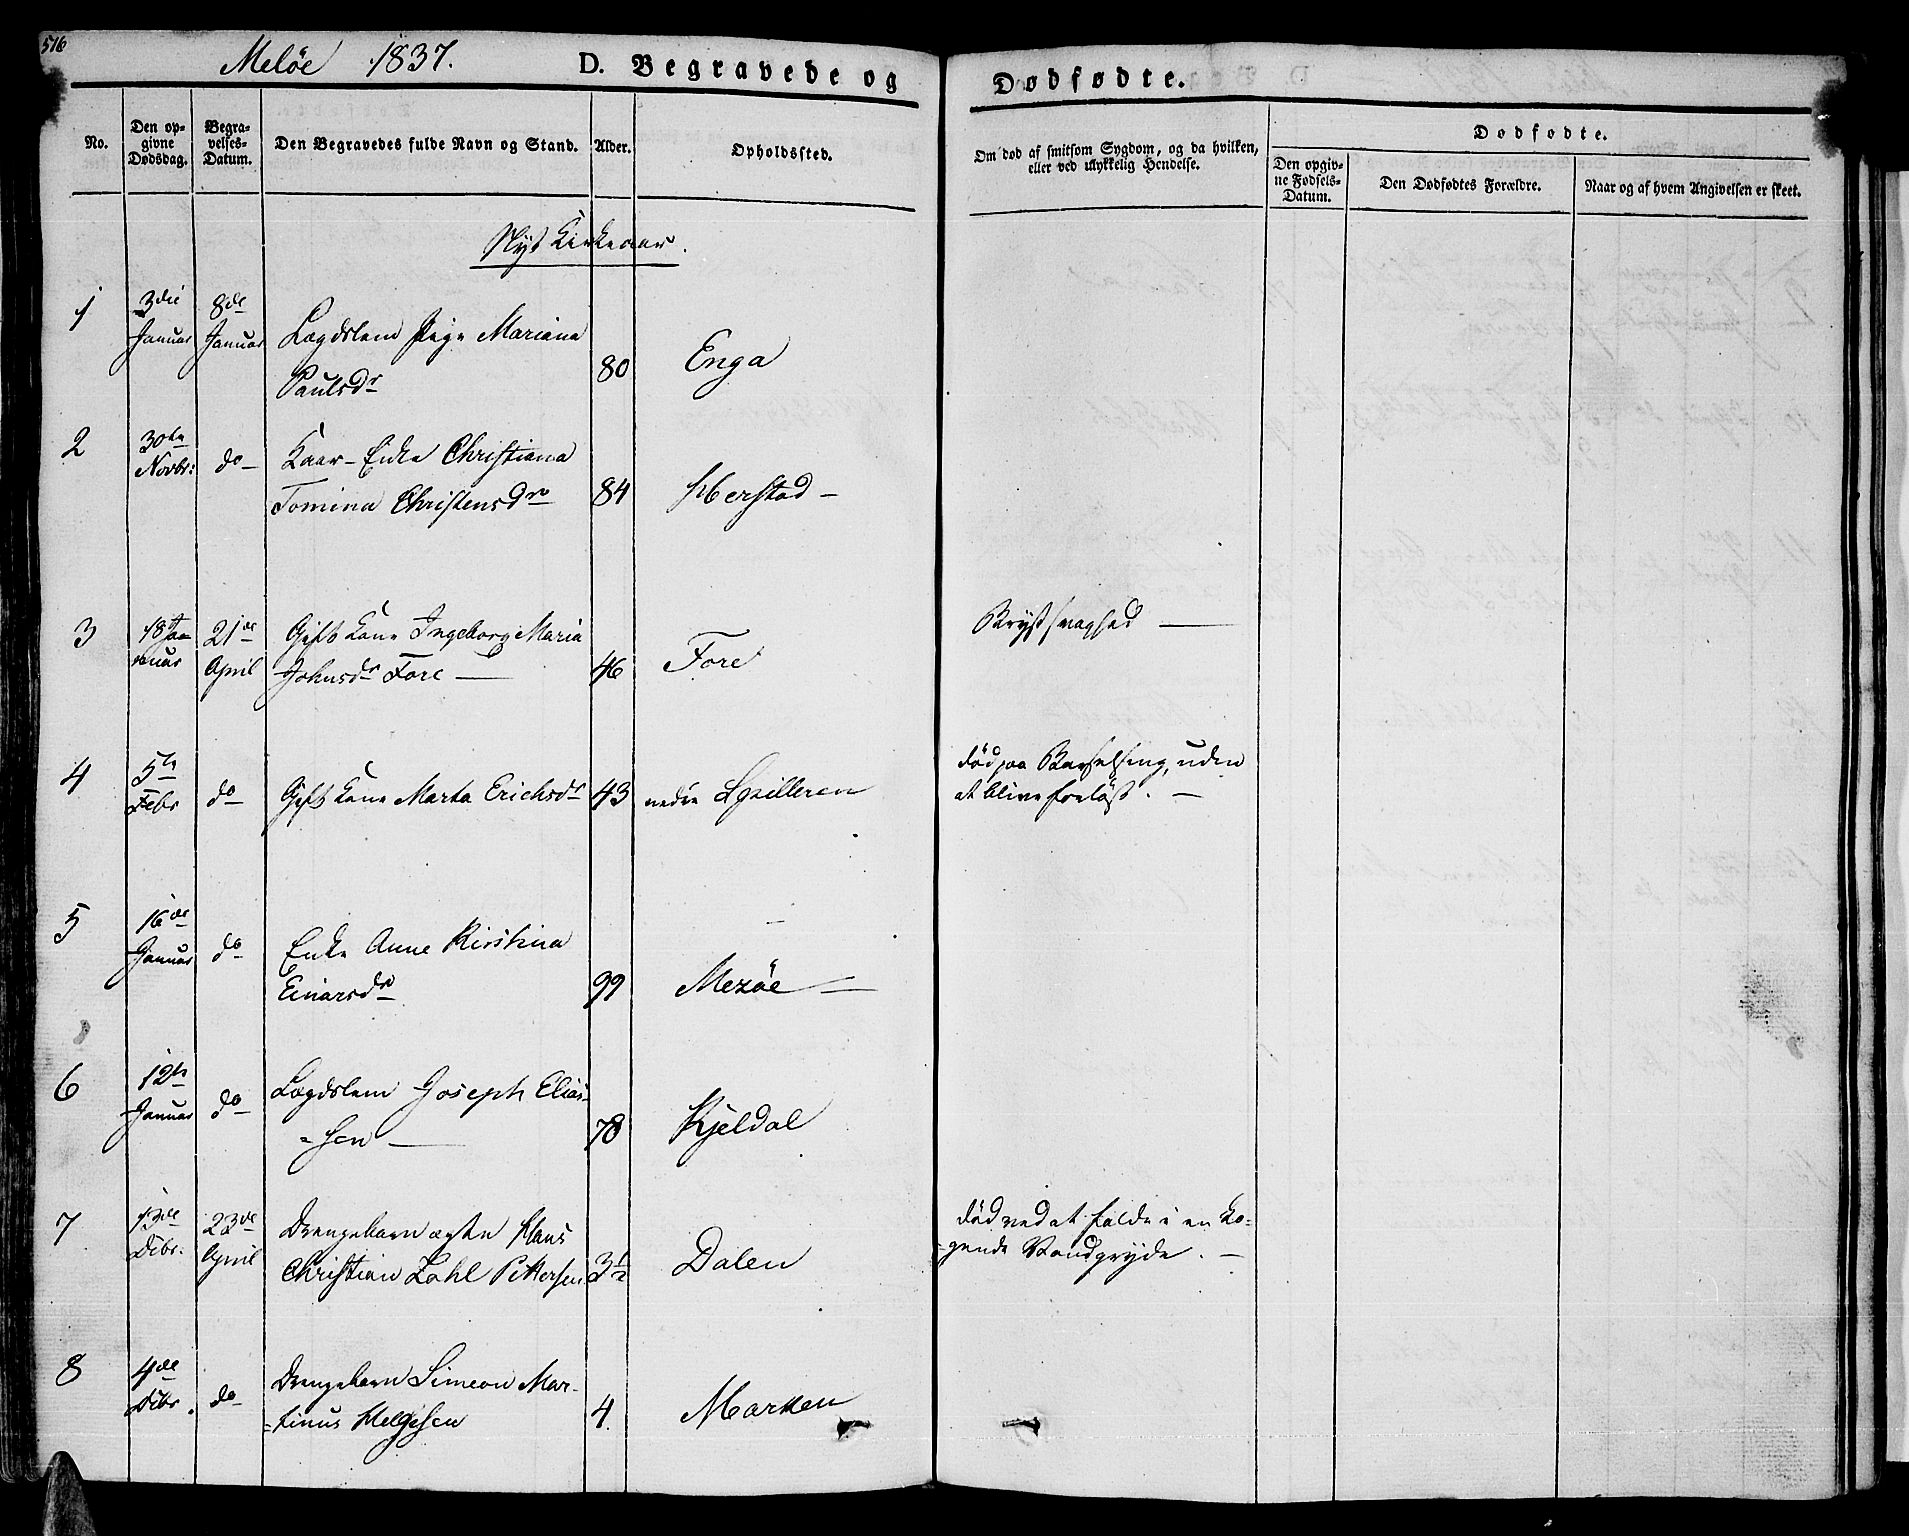 516
Meløe 1837.
D. Begravede og
Dødfødte.
No.
Den op-
givne
Dødsdag.
Begra-
velses-
Datum.
Den Begravedes fulde Navn og Stand.
Alder.
Opholdssted.
Om død af smitsom Sygdom, og da hvilken,
eller ved ulykkelig Hendelse.
Dødfødte.
Den opgiv-
ne Fødsels-
Datum.
Den Dødfødtes Forældre.
Naar og af hvem Angivelsen er skeet.
Nyt Kirkeaar.
1
3die
Januar
8de
Januar
Lægdslem Pige Mariana
Paulsdr
80
Enga
2
30te
Novbr:
do
Kaar-Enke Christiana
Tomina Christensdr
84
Herstad
3
18 Jan
nuar
21de
April
Gift Kone Ingeborg Maria
Johnsdr Fore
46
Fore
Brystsvaghed
4
5te
Febr
do
Gift Kone Marta Erichsdr
43
nedre Spilleren
død paa Barselseng, uden
at blive forløst.
5
16de
Januar
do
Enke Anne Kirstina
Einarsdr
99
Mesøe
6
12te
Januar
do
Lægdslem Joseph Elias-
=sen
78
Kjeldal
7
13de
Dcbr.
23de
April
Drengebarn ægte Hans
Christian Zahl Pettersen
3½
Dalen
død ved at falde i en ko-
=gende Vandgryde.
8
4de
Dcbr.
do
Drengebarn Simeon Mar-
=tinus Helgesen
4.
Marken